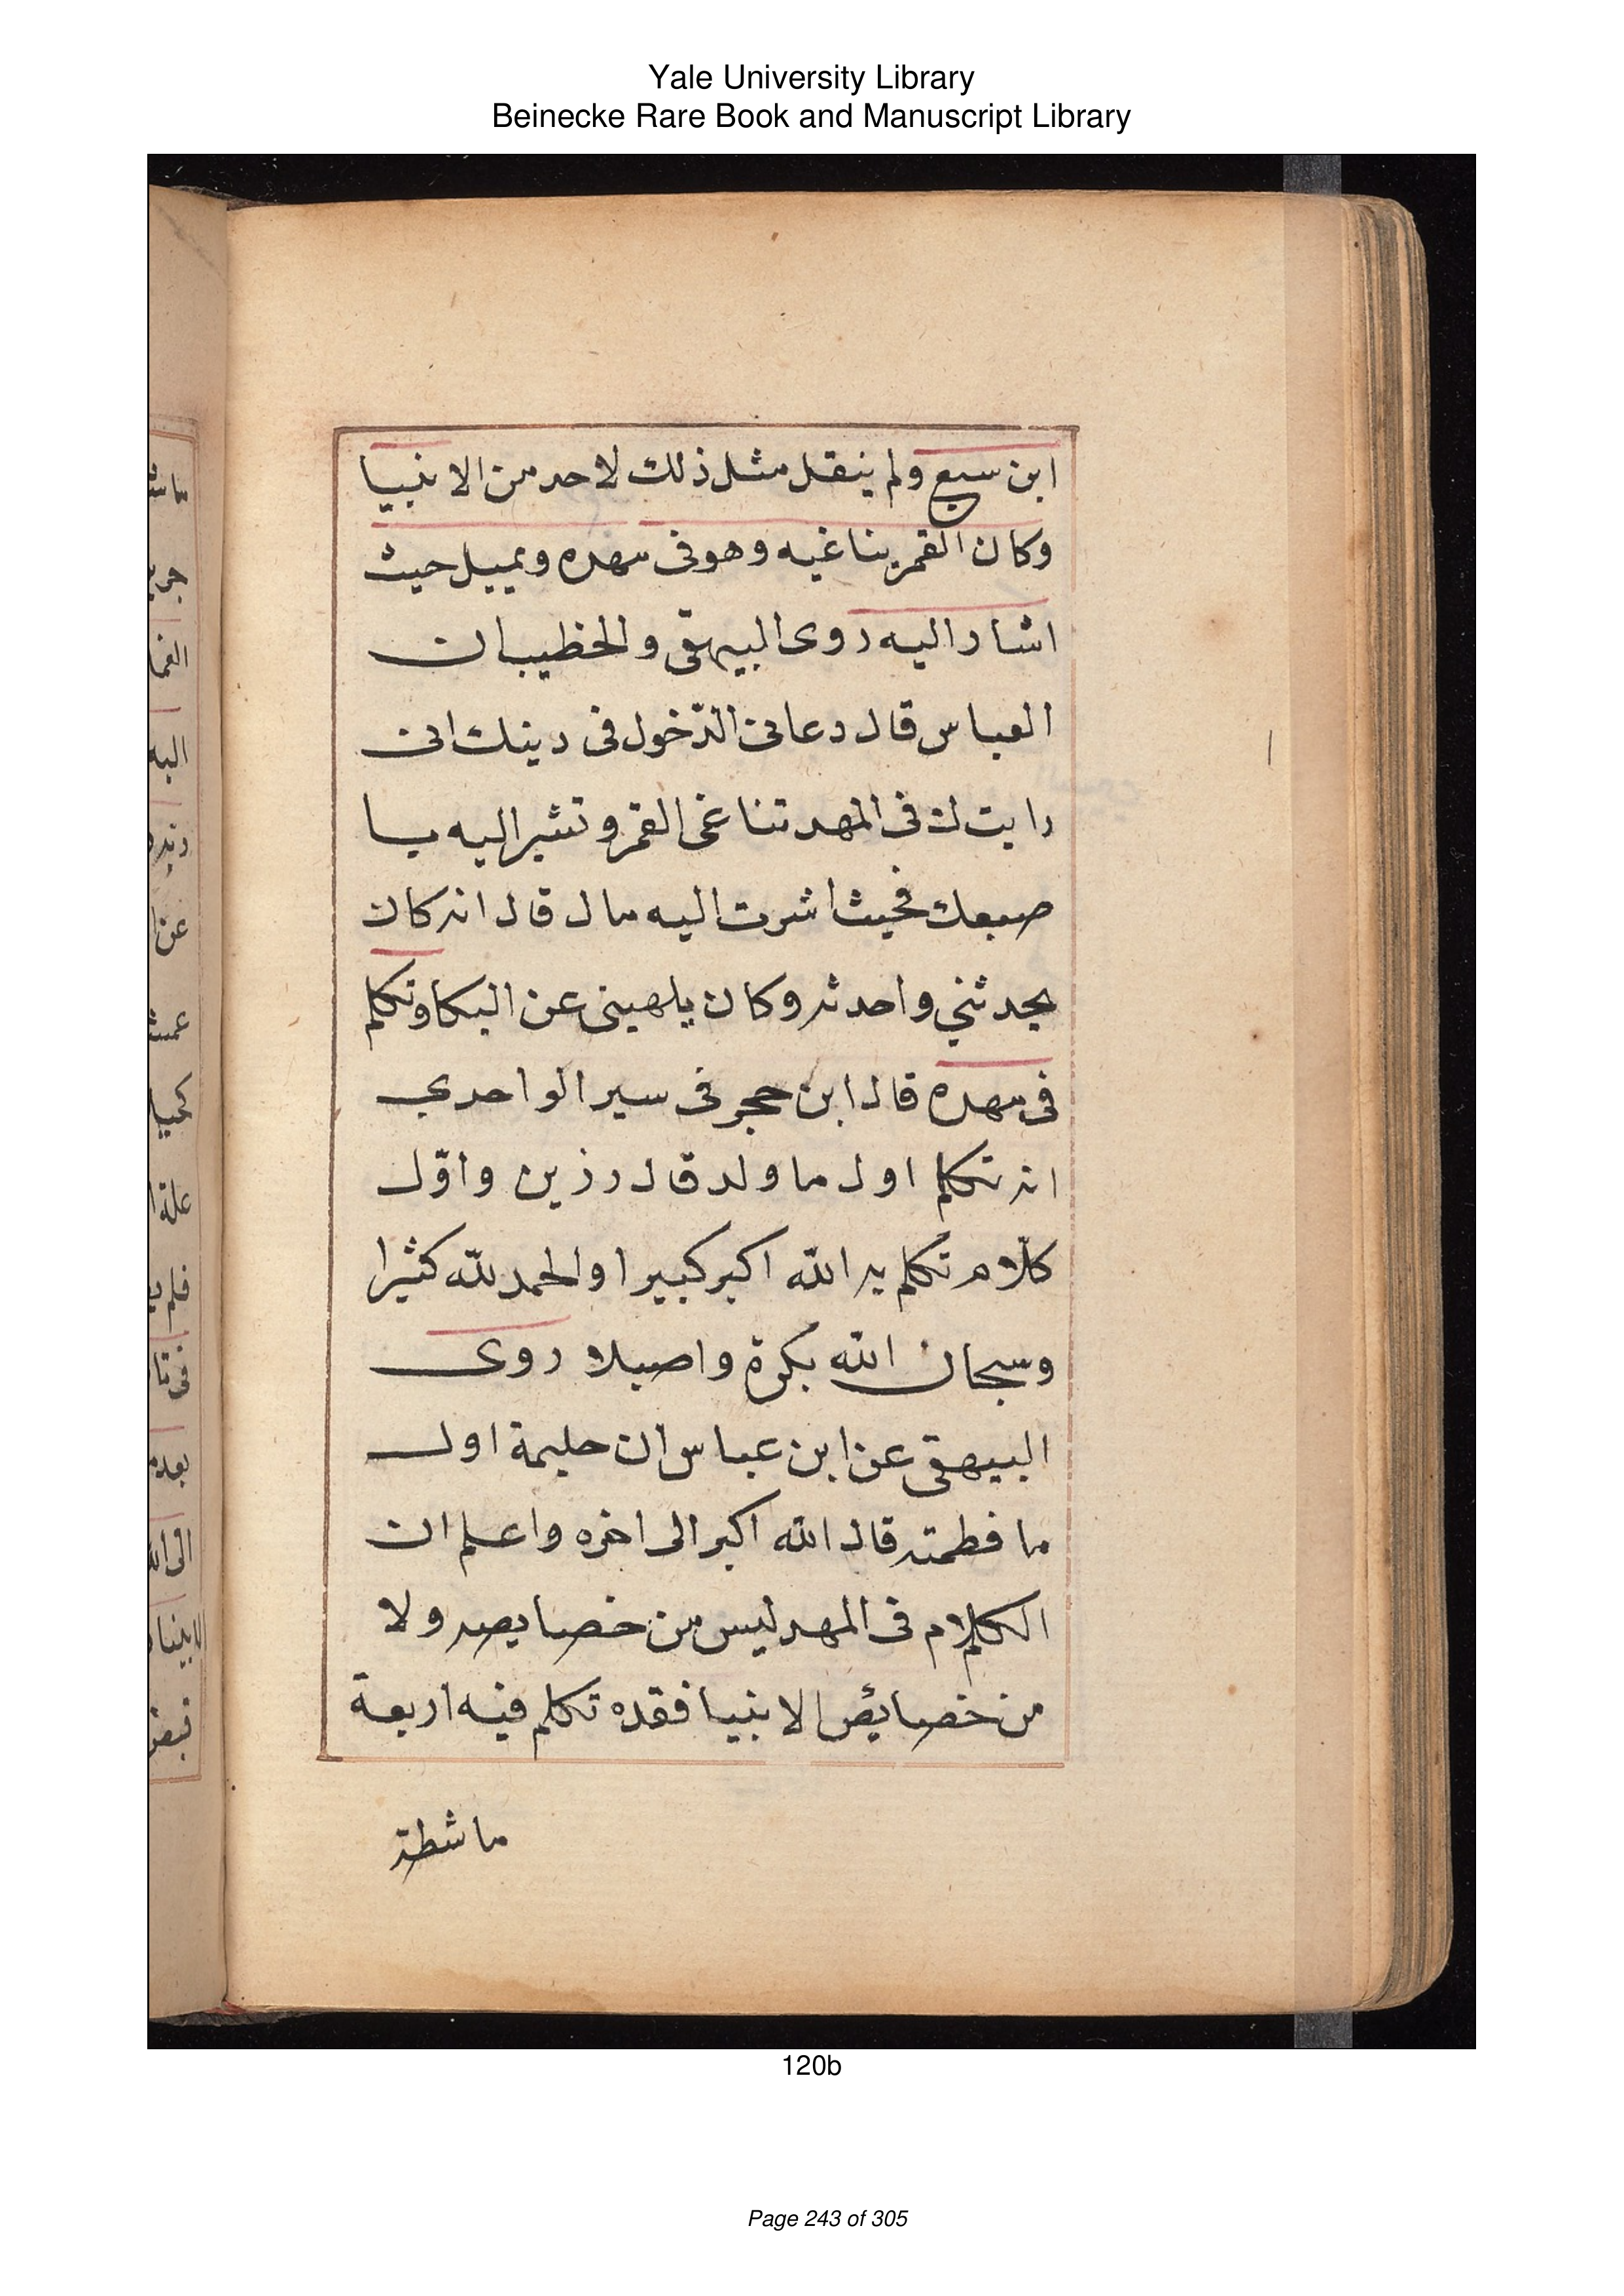 Yale University Library
Beinecke Rare Book and Manuscript Library
ابن سبع ولم ينقل مثل ذلك لاحد من الانبيا
وكان القمر يناغيه وهو فى مهده ويميل حيث
اشار اليه روى البيهقى والخطيب ان
العباس قال دعانى الدّخول فى دينك انى
رايت لك فى المهد تناغى القمر وتشير اليه با
صبعك فحيث اشرت اليه مال قال انه كان
يحدثني واحدثه وكان يلهينى عن البكا وتكلم
فى مهده قال ابن حجر فى سير الواحدي
انه تكلم اول ما ولد قال رزين واوّل
كلام تكلم به الله اكبر كبيرا والحمد لله كثيرا
وسبحان الله بكرة واصيلا روى
البيهقى عن ابن عباس ان حليمة اول
ما فطمته قال الله اكبر الى اخره واعلم ان
الكلام فى المهد ليس من خصايصه ولا
من خصايئص الانبيا فقده تكلم فيه اربعة
ماشطة
120b
Page 243 of 305